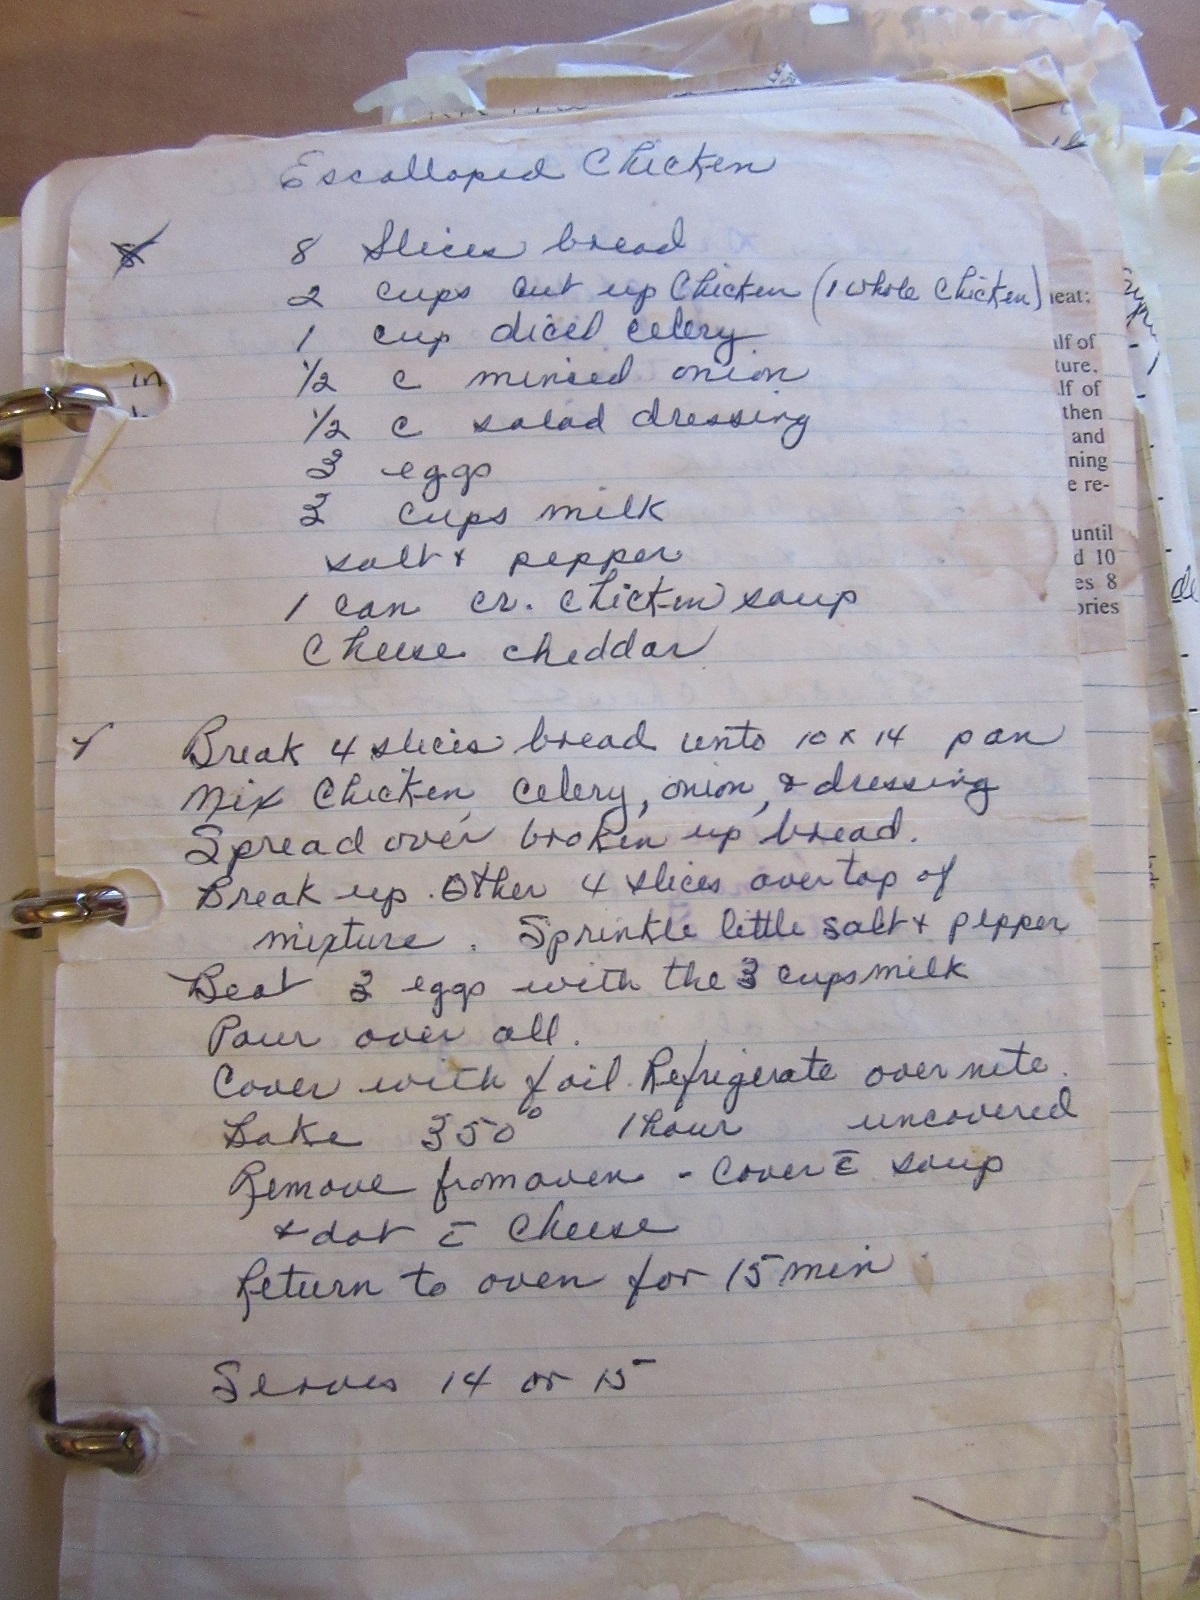 Escalloped Chicken
8 Slices bread
2 cups cut up Chicken (1 whole chicken)
1 cup diced celery
1/2 c minced onion
1/2 c salad dressing
3 eggs
3 cups milk
salt & pepper
1 can cr. chicken soup
Cheese cheddar
Break 4 slices bread unto 10 x 14 pan
Mix Chicken, Celery, onion, & dressing
Spread over broken up bread.
Break up Other 4 slices over top of
mixture. Sprinkle little salt & pepper
Beat 3 eggs with the 3 cups milk
Pour over all.
Cover with foil. Refrigerate over nite.
Bake 350° 1 hour uncovered
Remove from oven - Cover c̄ soup
& dot c̄ Cheese
Return to oven for 15 min
Serves 14 or 15
in
eat:
alf of
ture.
lf of
then
and
ning
e re-
until
d 10
es 8
ories